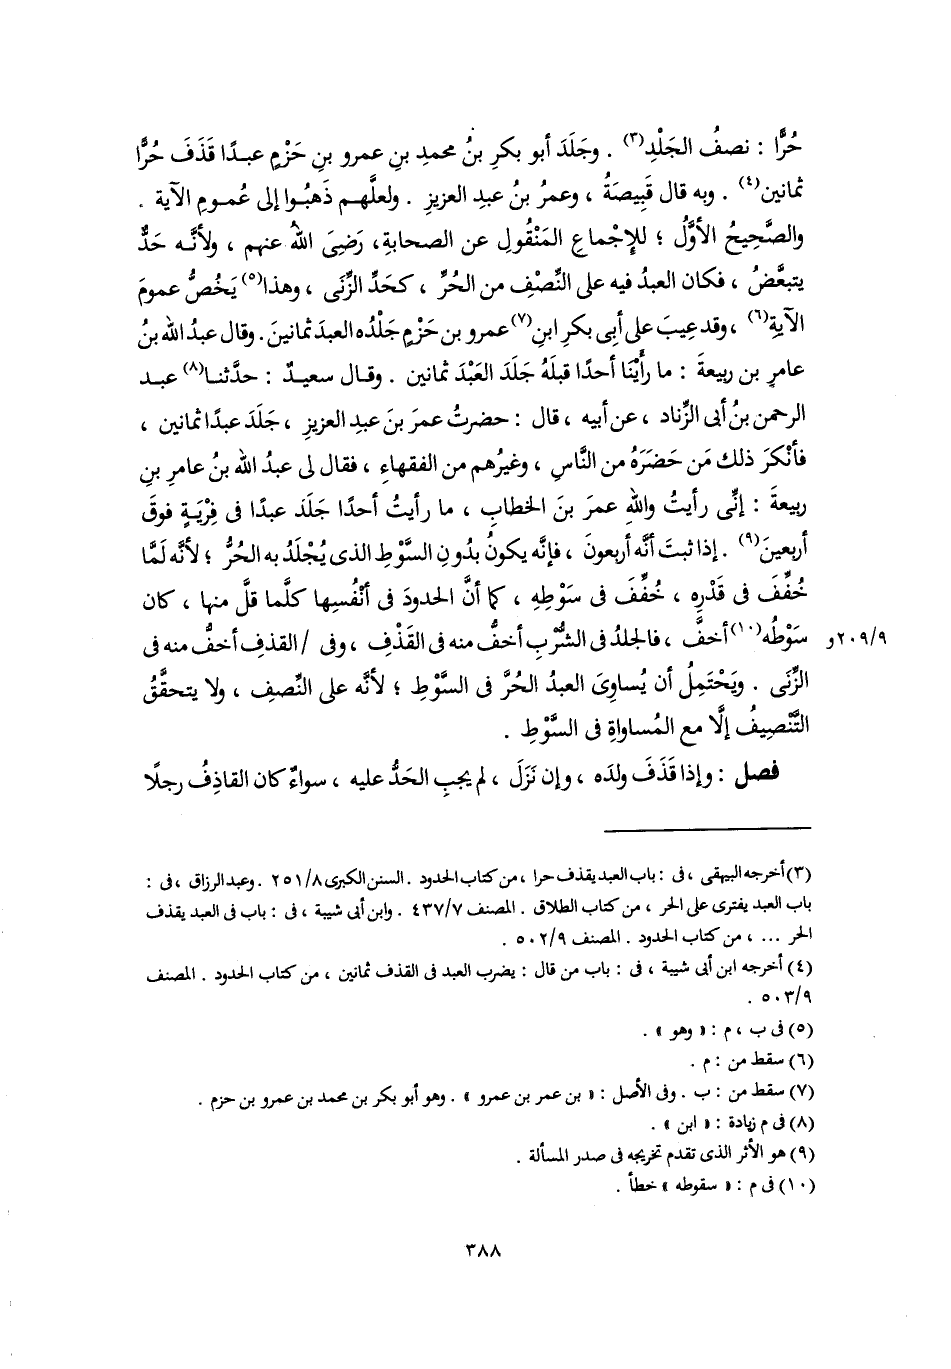 حُرًّا : نصفُ الجَلْدِ(٣) . وجَلَدَ أبو بكرِ بنُ محمدِ بنِ عمرِو بنِ حَزْمٍ عبدًا قَذَفَ حُرًّا
ثمانين(٤) . وبه قال قَبِيصَةُ ، وعمرُ بنُ عبدِ العزيزِ . ولعلَّهم ذَهبُوا إلى عُمومِ الآية .
والصَّحِيحُ الأوَّلُ ؛ للإجماعِ المَنْقُولِ عن الصحابةِ، رَضِىَ اللهُ عنهم ، ولأنَّه حَدٌّ
يتبعَّضُ ، فكان العبدُ فيه على النِّصْفِ من الحُرِّ ، كحَدِّ الزِّنَى ، وهذا(٥) يَخُصُّ عمومَ
الآيةِ(٦) ، وقد عِيبَ على أبى بكرِ ابنِ(٧) عمرِو بن حَزْمٍ جَلْدُه العبدَ ثمانينَ . وقال عبدُ الله بنُ
عامرِ بن ربيعةَ : ما رأَيْنَا أحدًا قبلَهُ جَلَدَ العَبْدَ ثمانين . وقال سعيدٌ : حدَّثنا(٨) عبد
الرحمن بنُ أبى الزِّناد ، عن أبيه ، قال : حضرتُ عمرَ بنَ عبدِ العزيزِ ، جَلَدَ عبدًا ثمانين ،
فأنْكرَ ذلك مَن حَضَرَهُ من النَّاسِ ، وغيرُهم من الفقهاءِ ، فقال لى عبدُ الله بنُ عامرِ بنِ
ربيعةَ : إنِّى رأيتُ واللهِ عمرَ بنَ الخطابِ ، ما رأيتُ أحدًا جَلَدَ عبدًا فى فِرْيَةٍ فوقَ
أربعينَ(٩) . إذا ثبتَ أنَّه أربعونَ ، فإنَّه يكونُ بدُونِ السَّوْطِ الذى يُجْلَدُ به الحُرُّ ؛ لأنَّه لَمَّا
خُفِّفَ فى قَدْرِه ، خُفِّفَ فى سَوْطِهِ ، كما أنَّ الحدودَ فى أنْفُسِها كلَّما قلَّ منها ، كان
سَوْطُه(١٠) أخفَّ ، فالجلدُ فى الشُّرْبِ أخفُّ منه فى القَذْفِ ، وفى / القذفِ أخفُّ منه فى
٢٠٩/٩و
الزِّنَى . ويَحْتَمِلُ أن يُساوِىَ العبدُ الحُرَّ فى السَّوْطِ ؛ لأنَّه على النِّصفِ ، ولا يتحقَّقُ
التَّنْصِيفُ إلَّا مع المُساواةِ فى السَّوْطِ .
فصل : وإذا قَذَفَ ولدَه ، وإن نَزَلَ ، لم يجبِ الحَدُّ عليه ، سواءٌ كان القاذِفُ رجلًا
(٣) أخرجه البيهقى ، فى : باب العبد يقذف حرا ، من كتاب الحدود . السنن الكبرى ٢٥١/٨ . وعبد الرزاق ، فى :
باب العبد يفترى على الحر ، من كتاب الطلاق . المصنف ٤٣٧/٧ . وابن أبى شيبة ، فى : باب فى العبد يقذف
الحر ... ، من كتاب الحدود . المصنف ٥٠٢/٩ .
(٤) أخرجه ابن أبى شيبة ، فى : باب من قال : يضرب العبد فى القذف ثمانين ، من كتاب الحدود . المصنف
٥٠٣/٩ .
(٥) فى ب ، م : « وهو » .
(٦) سقط من : م .
(٧) سقط من : ب . وفى الأصل : « بن عمر بن عمرو » . وهو أبو بكر بن محمد بن عمرو بن حزم .
(٨) فى م زيادة : « ابن » .
(٩) هو الأثر الذى تقدم تخريجه فى صدر المسألة .
(١٠) فى م : « سقوطه » خطأ .
٣٨٨